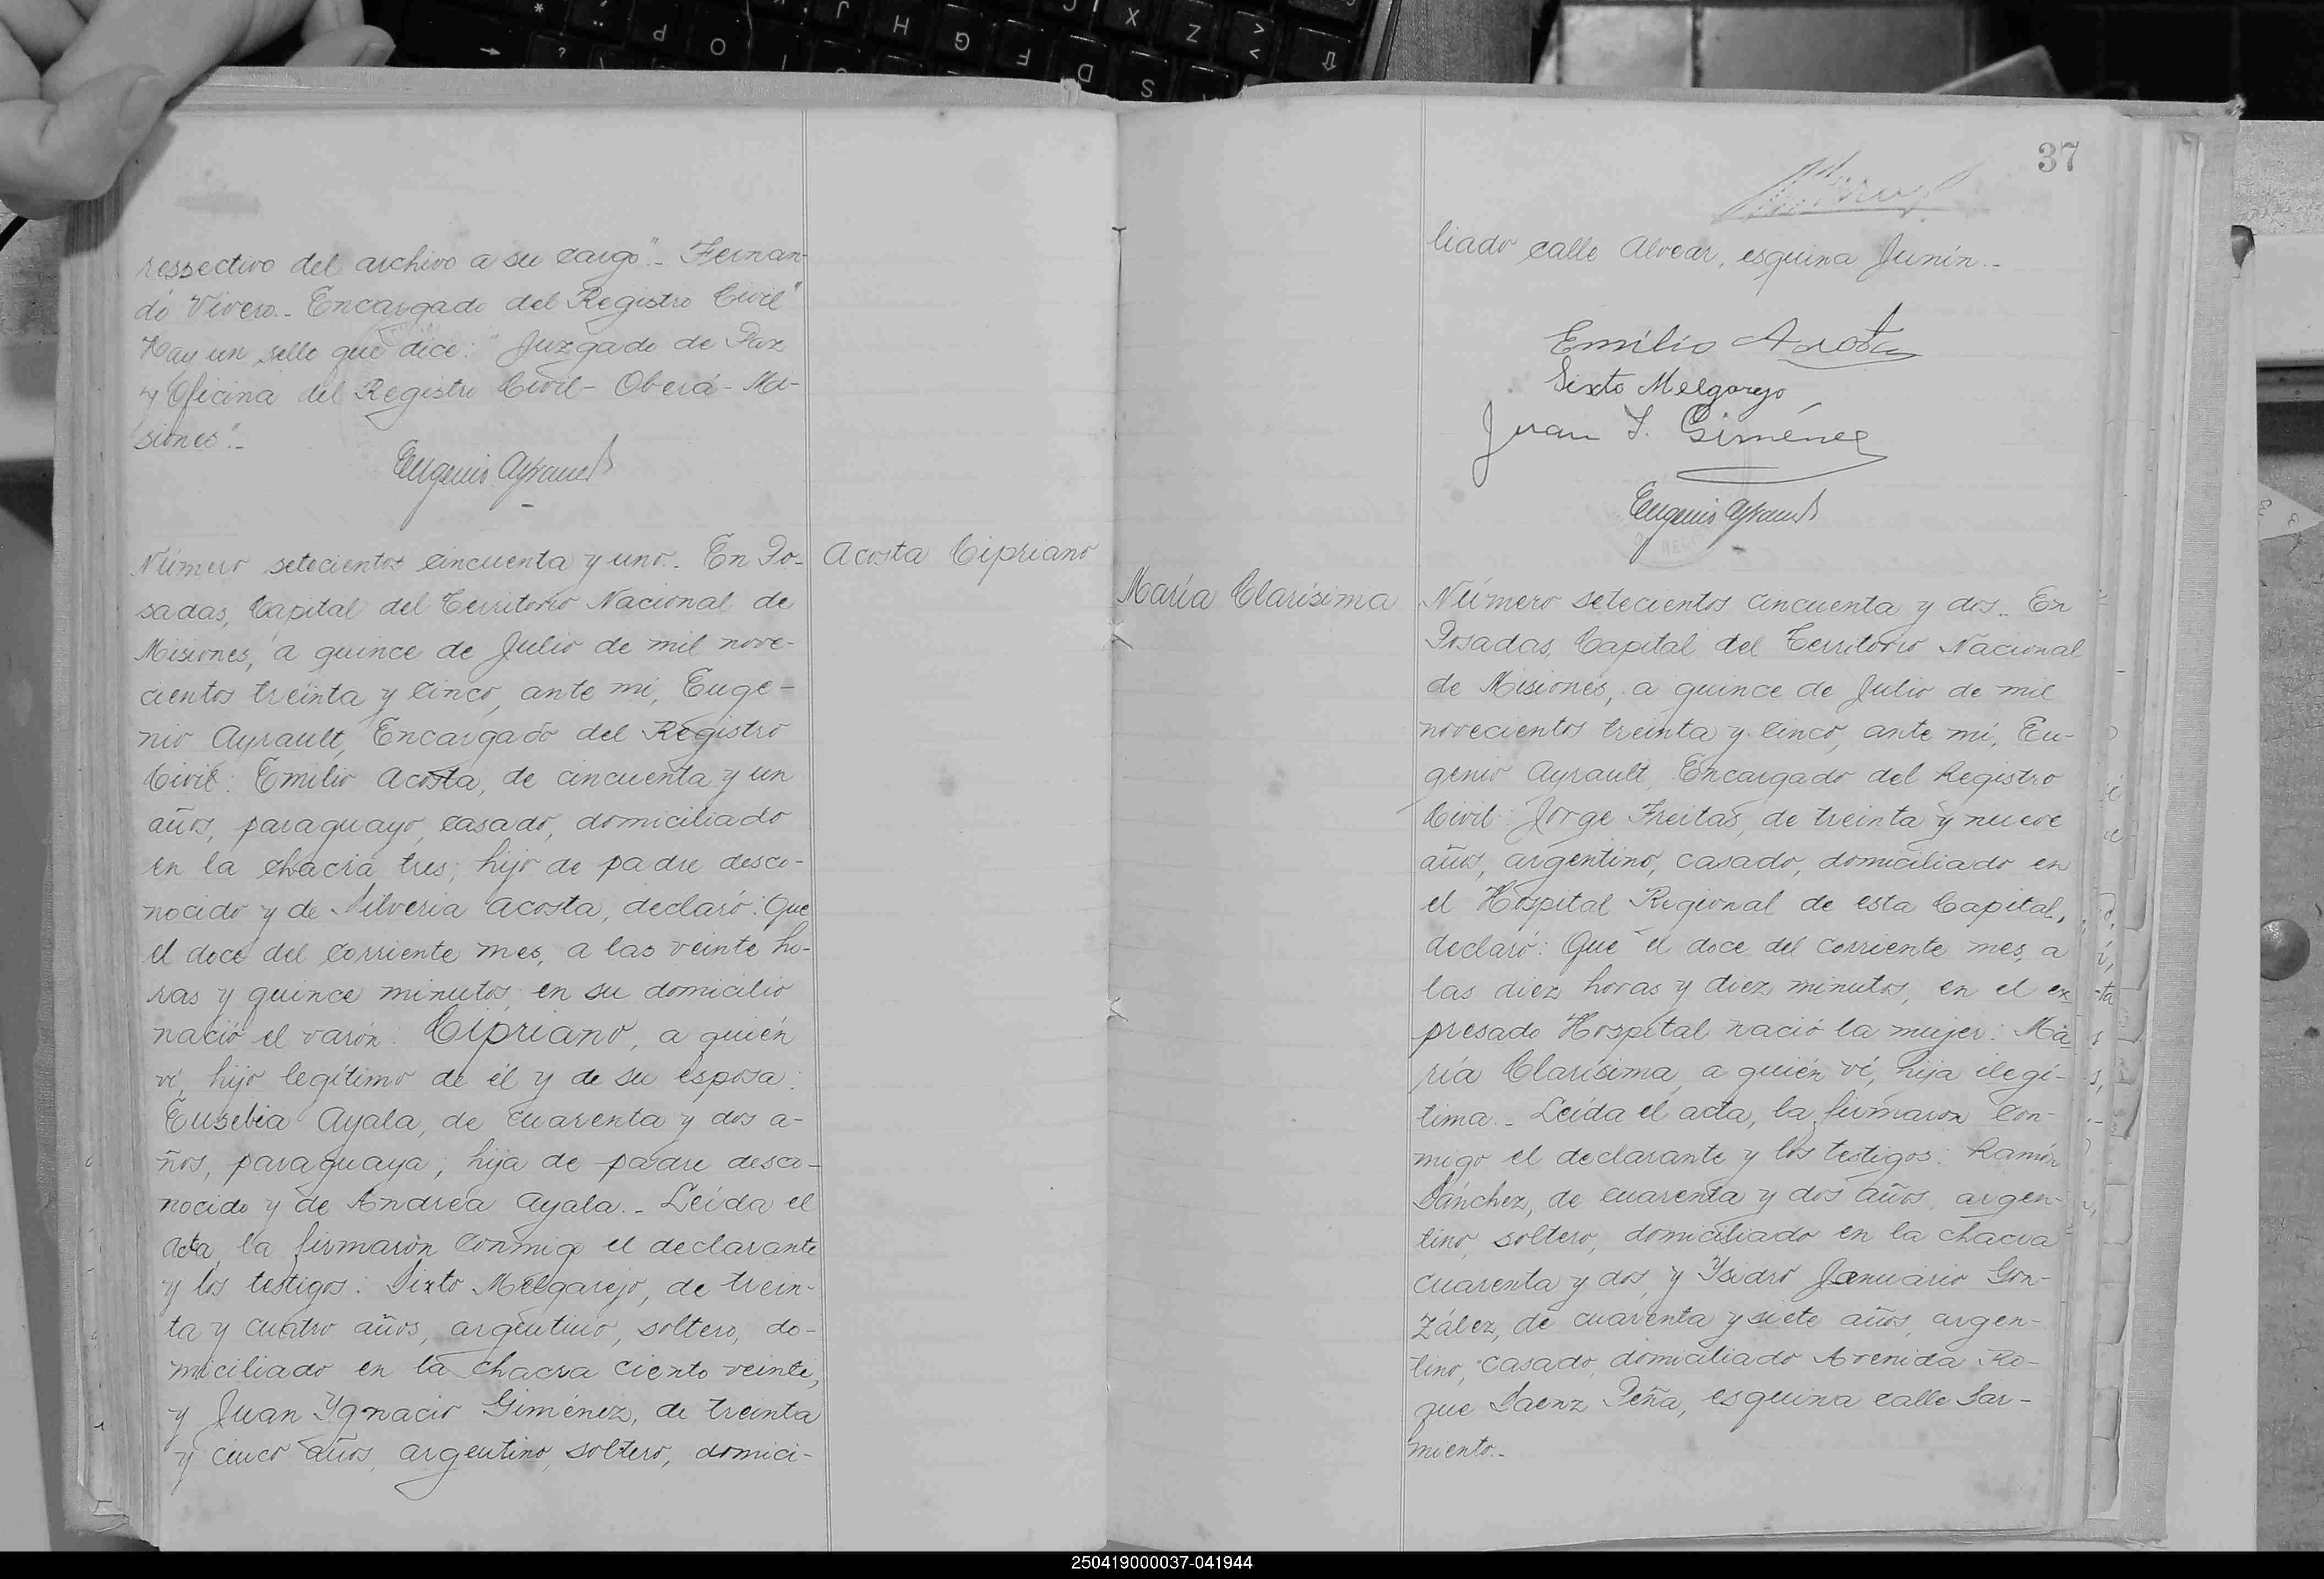 respectivo del archivo a su cargo".- Fernan-
do Vivero.- Encargado del Registro Civil"
Hay un sello que dice: "Juzgado de Paz
y Oficina del Registro Civil - Oberá - Mi-
siones".-
Eugenio Ayrault
Número setecientos cincuenta y uno.- En Po-
sadas, Capital del Territorio Nacional de
Misiones, a quince de Julio de mil nove-
cientos treinta y cinco, ante mí, Euge-
nio Ayrault, Encargado del Registro
Civil: Emilio Acosta, de cincuenta y un
años, paraguayo, casado, domiciliado
en la chacra tres; hijo de padre desco-
nocido y de Silveria Acosta, declaró: Que
el doce del corriente mes, a las veinte ho-
ras y quince minutos en su domicilio
nació el varón: Cipriano, a quién
ví, hijo legítimo de él y de su esposa:
Eusebia Ayala, de cuarenta y dos a-
ños, paraguaya; hija de padre desco-
nocido y de Andrea Ayala.- Leída el
acta, la firmaron conmigo el declarante
y los testigos: Sixto Melgarejo, de trein-
ta y cuatro años, argentino, soltero, do-
miciliado en la chacra ciento veinte,
y Juan Ygnacio Giménez, de treinta
y cinco años, argentino, soltero, domici-
Acosta Cipriano
37
liado calle Alvear, esquina Junín.-
Emilio Acosta
Sixto Melgarejo
Juan Y. Giménez
Eugenio Ayrault
María Clarísima
Número setecientos cincuenta y dos.- En
Posadas, Capital del Territorio Nacional
de Misiones, a quince de Julio de mil
novecientos treinta y cinco, ante mí, Eu-
genio Ayrault, Encargado del Registro
Civil: Jorge Freitas, de treinta y nueve
años, argentino, casado, domiciliado en
el Hospital Regional de esta Capital,
declaró: Que el doce del corriente mes, a
las diez horas y diez minutos, en el ex-
presado Hospital nació la mujer: Ma-
ría Clarísima, a quién ví, hija ilegí-
tima.- Leída el acta, la firmaron con-
migo el declarante y los testigos: Ramón
Sánchez, de cuarenta y dos años, argen-
tino, soltero, domiciliado en la chacra
cuarenta y dos, y Ysidro Januario Gon-
zález, de cuarenta y siete años, argen-
tino, casado, domiciliado Avenida Ro-
que Saenz Peña, esquina calle Sar-
miento.-
250419000037-041944